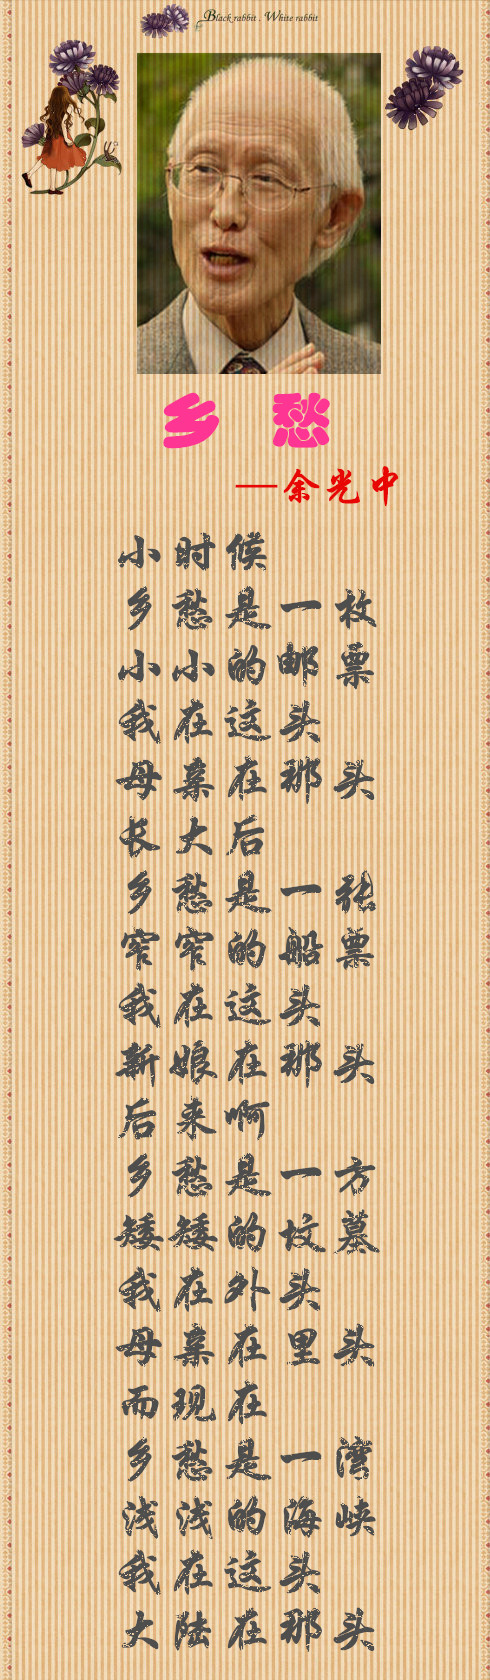 Black rabbit . White rabbit
乡 愁
—余光中
小时候
乡愁是一枚
小小的邮票
我在这头
母亲在那头
长大后
乡愁是一张
窄窄的船票
我在这头
新娘在那头
后来啊
乡愁是一方
矮矮的坟墓
我在外头
母亲在里头
而现在
乡愁是一湾
浅浅的海峡
我在这头
大陆在那头